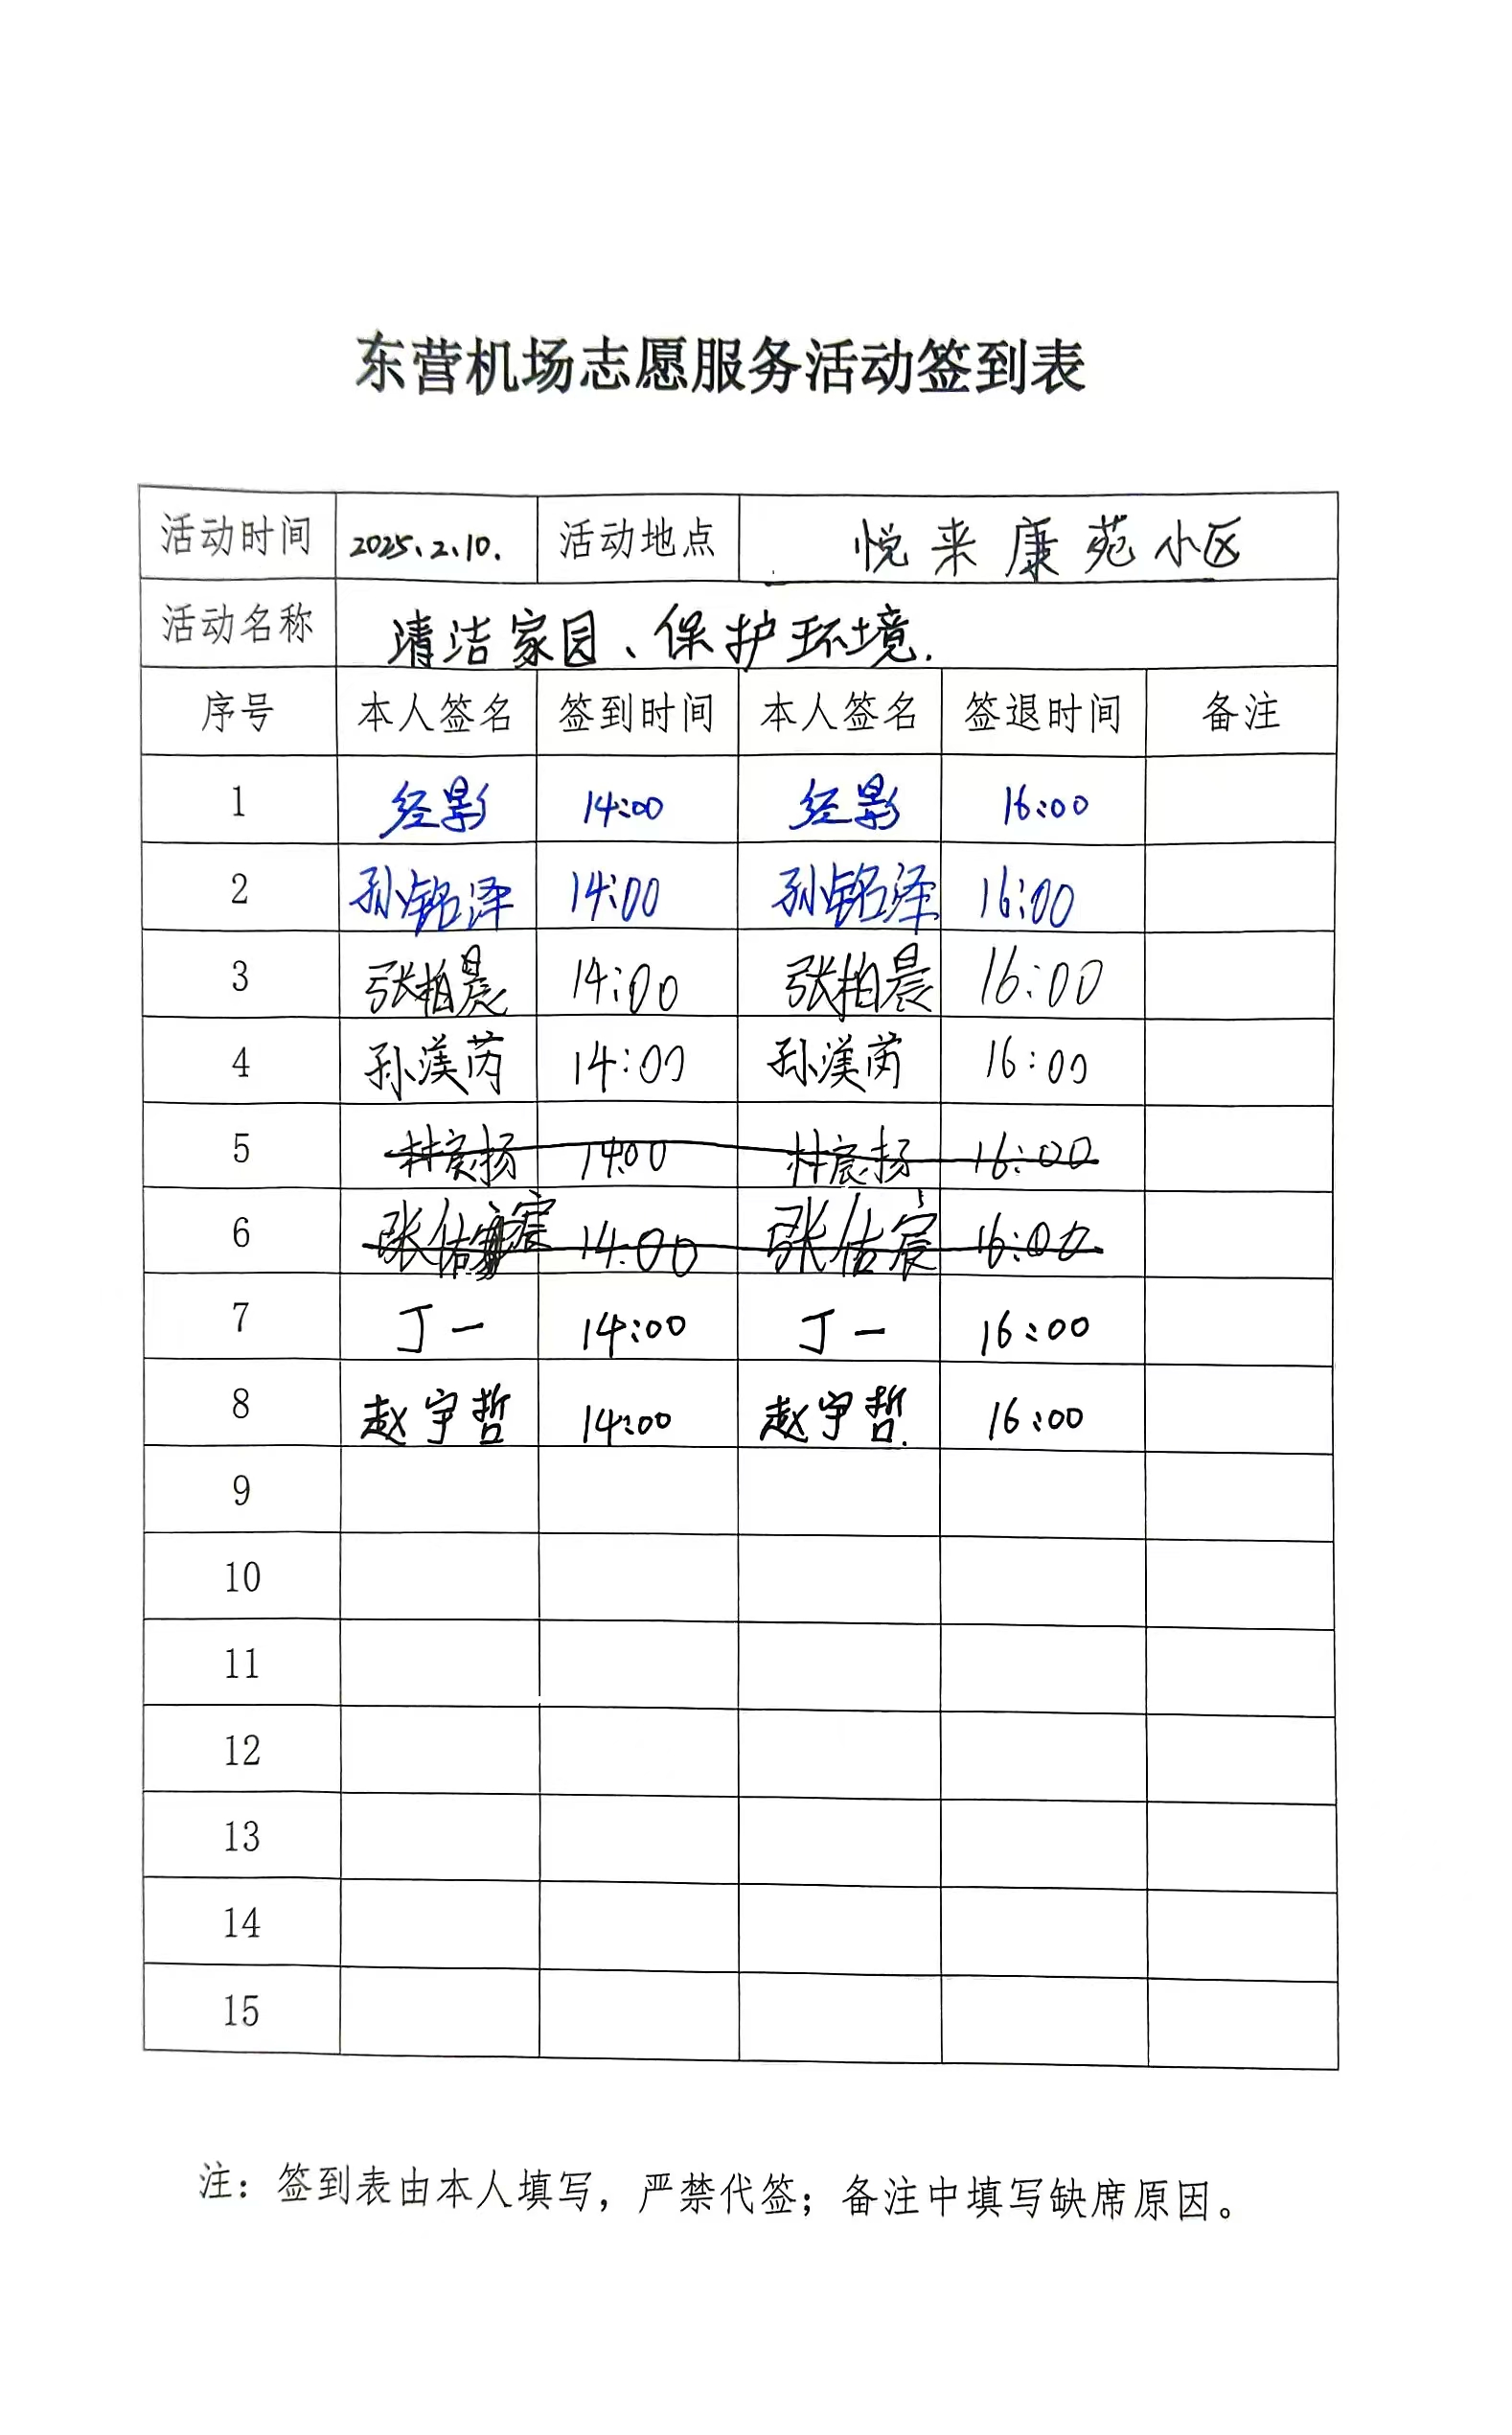 东营机场志愿服务活动签到表
活动时间 2025.2.10. 活动地点 悦来康苑小区
活动名称 清洁家园、保护环境.
序号 本人签名 签到时间 本人签名 签退时间 备注
1 经影 14:00 经影 16:00
2 孙铭泽 14:00 孙铭泽 16:00
3 张柏晨 14:00 张柏晨 16:00
4 孙渼芮 14:00 孙渼芮 16:00
5 林宸扬 14:00 林宸扬 16:00
6 张佑宸 14:00 张佑宸 16:00
7 丁一 14:00 丁一 16:00
8 赵宇哲 14:00 赵宇哲 16:00
9
10
11
12
13
14
15
注：签到表由本人填写，严禁代签；备注中填写缺席原因。